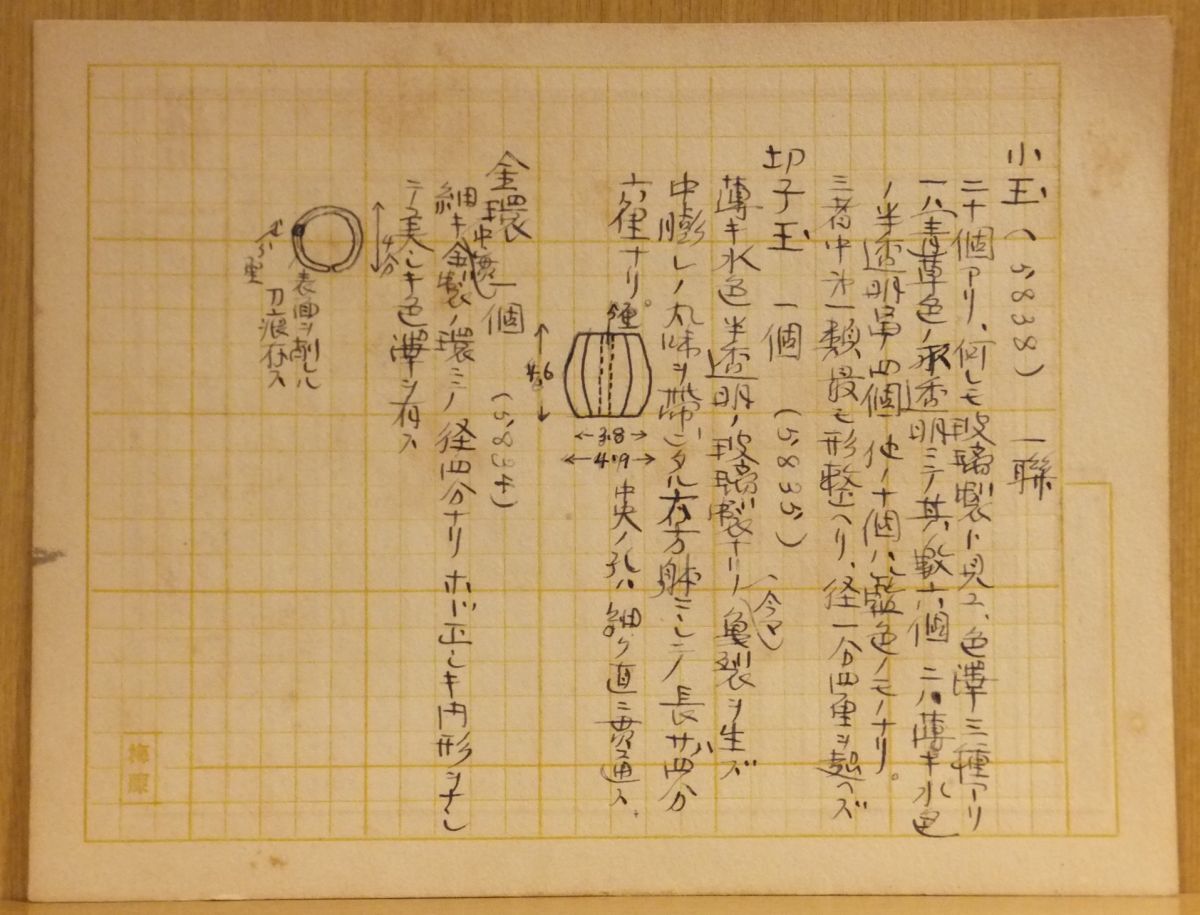 小玉（5838） 一聯
二十個アリ、何レモ玻璃製ト見ユ、色澤三種アリ
一ハ青草色ノ透明ニテ其ノ數六個 二ハ薄キ水色
ノ半透明 四個 他ノ十個ハ藍色ノモノナリ。
三者中第一類最モ形整ヘリ、径一分四厘ヲ超ヘズ
切子玉 一個 （5835）
薄キ水色半透明ノ玻璃製ナリ 亀裂ヲ生ズ
中膨レノ丸味ヲ帯ビタル 方躰ニシテ長サ四分
六厘ナリ。
4.6
3.8
4.9
中央ノ孔ハ細ク直ニ貫通ス
金環 一個 （5834）
中實
細キ金製ノ環ニシ 径四分ナリ ホボ正シキ円形ヲナシ
テ美シキ色澤ヲ有ス
4分
表面ヲ削レル
刀痕存ス